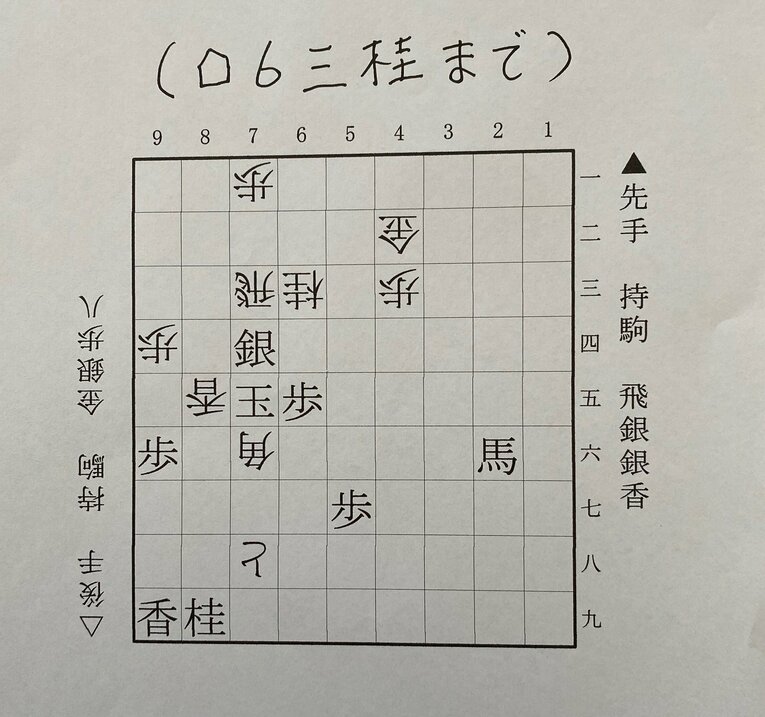 (□6三桂まで)
9 8 7 6 5 4 3 2 1
歩 一
金 二
飛 桂 歩 三
歩 銀 四
香 玉 歩 五
歩 角 馬 六
歩 七
と 八
香 桂 九
▲先手 持駒 飛銀銀香
△後手 持駒 金銀歩八